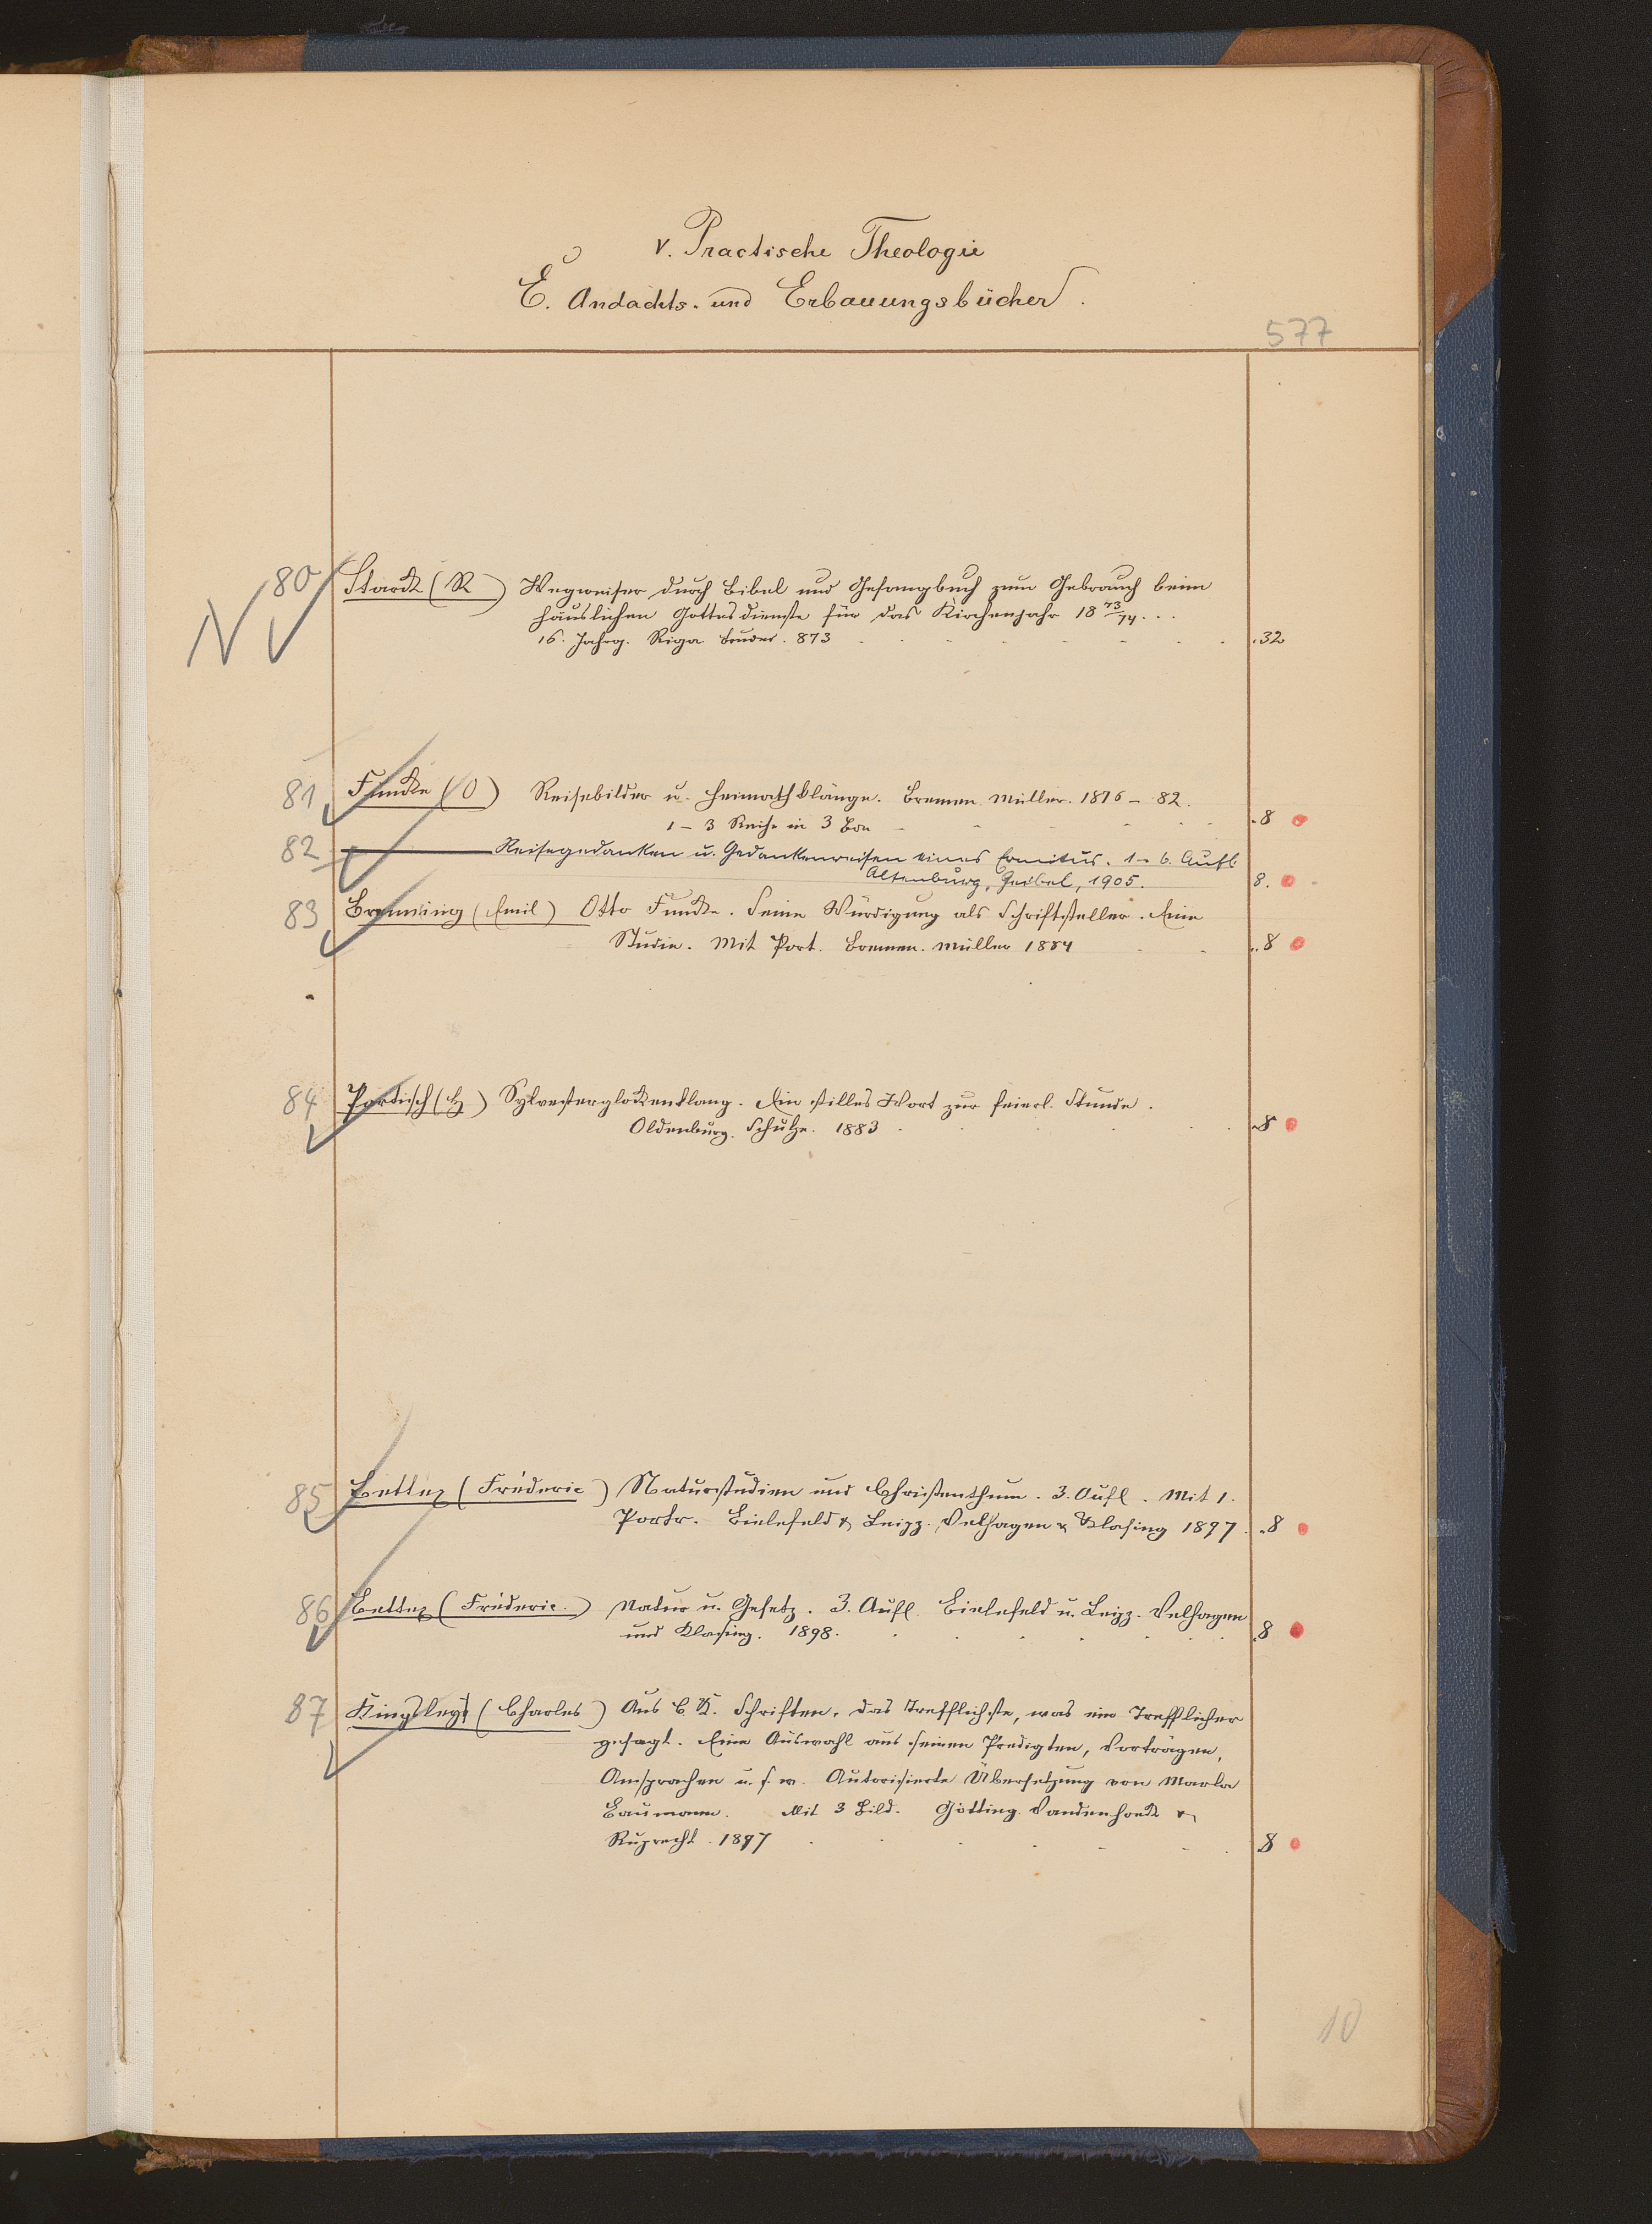 V. Practische Theologie
E. Andachts- und Erbauungsbücher.
577
80 Starck (R) Wegweiser durch Bibel und Gesangbuch zum Gebrauch beim
häuslichen Gottesdienste für das Kirchenjahr 18 73/74 . . .
16. Jahrg. Riga 873 .32
81 Funcke (O) Reisebilder u. Heimathklänge. Bremen. Müller. 1876 - 82.
1 - 3 Reihe in 3 Bdn .8
82 Reisegedanken u. Gedankenreisen eines Emeritus. 1 - 6. Aufl.
Altenburg, Geibel, 1905. 8.
83 Brenning (Emil) Otto Funcke. Seine Würdigung als Schriftsteller. Eine
Studie. Mit Port. Bremen. Müller 1884 ..8
84 Portisch (H) Sylvesterglockenklang. Ein stilles Wort zur feierl. Stunde.
Oldenburg. Schulze. 1883 8
85 Bettex (Fréderic) Naturstudien und Christenthum. 3. Aufl. Mit 1.
Portr. Bielefeld & Leipz. Velhagen & Klasing 1897. .8
86 Bettex (Fréderic.) Natur u. Gesetz. 3. Aufl. Bielefeld u. Leipz. Velhagen
und Klasing. 1898. .8
87 Kingsley (Charles) Aus C. K. Schriften. Das Trefflichste, was ein Trefflicher
gesagt. Eine Auswahl aus seinen Predigten, Vorträgen,
Ansprachen u. s. w. Autorisierte Übersetzung von
Baumann. Mit 3 Bild. Götting. Vandenhoeck &
Ruprecht. 1897 8
10